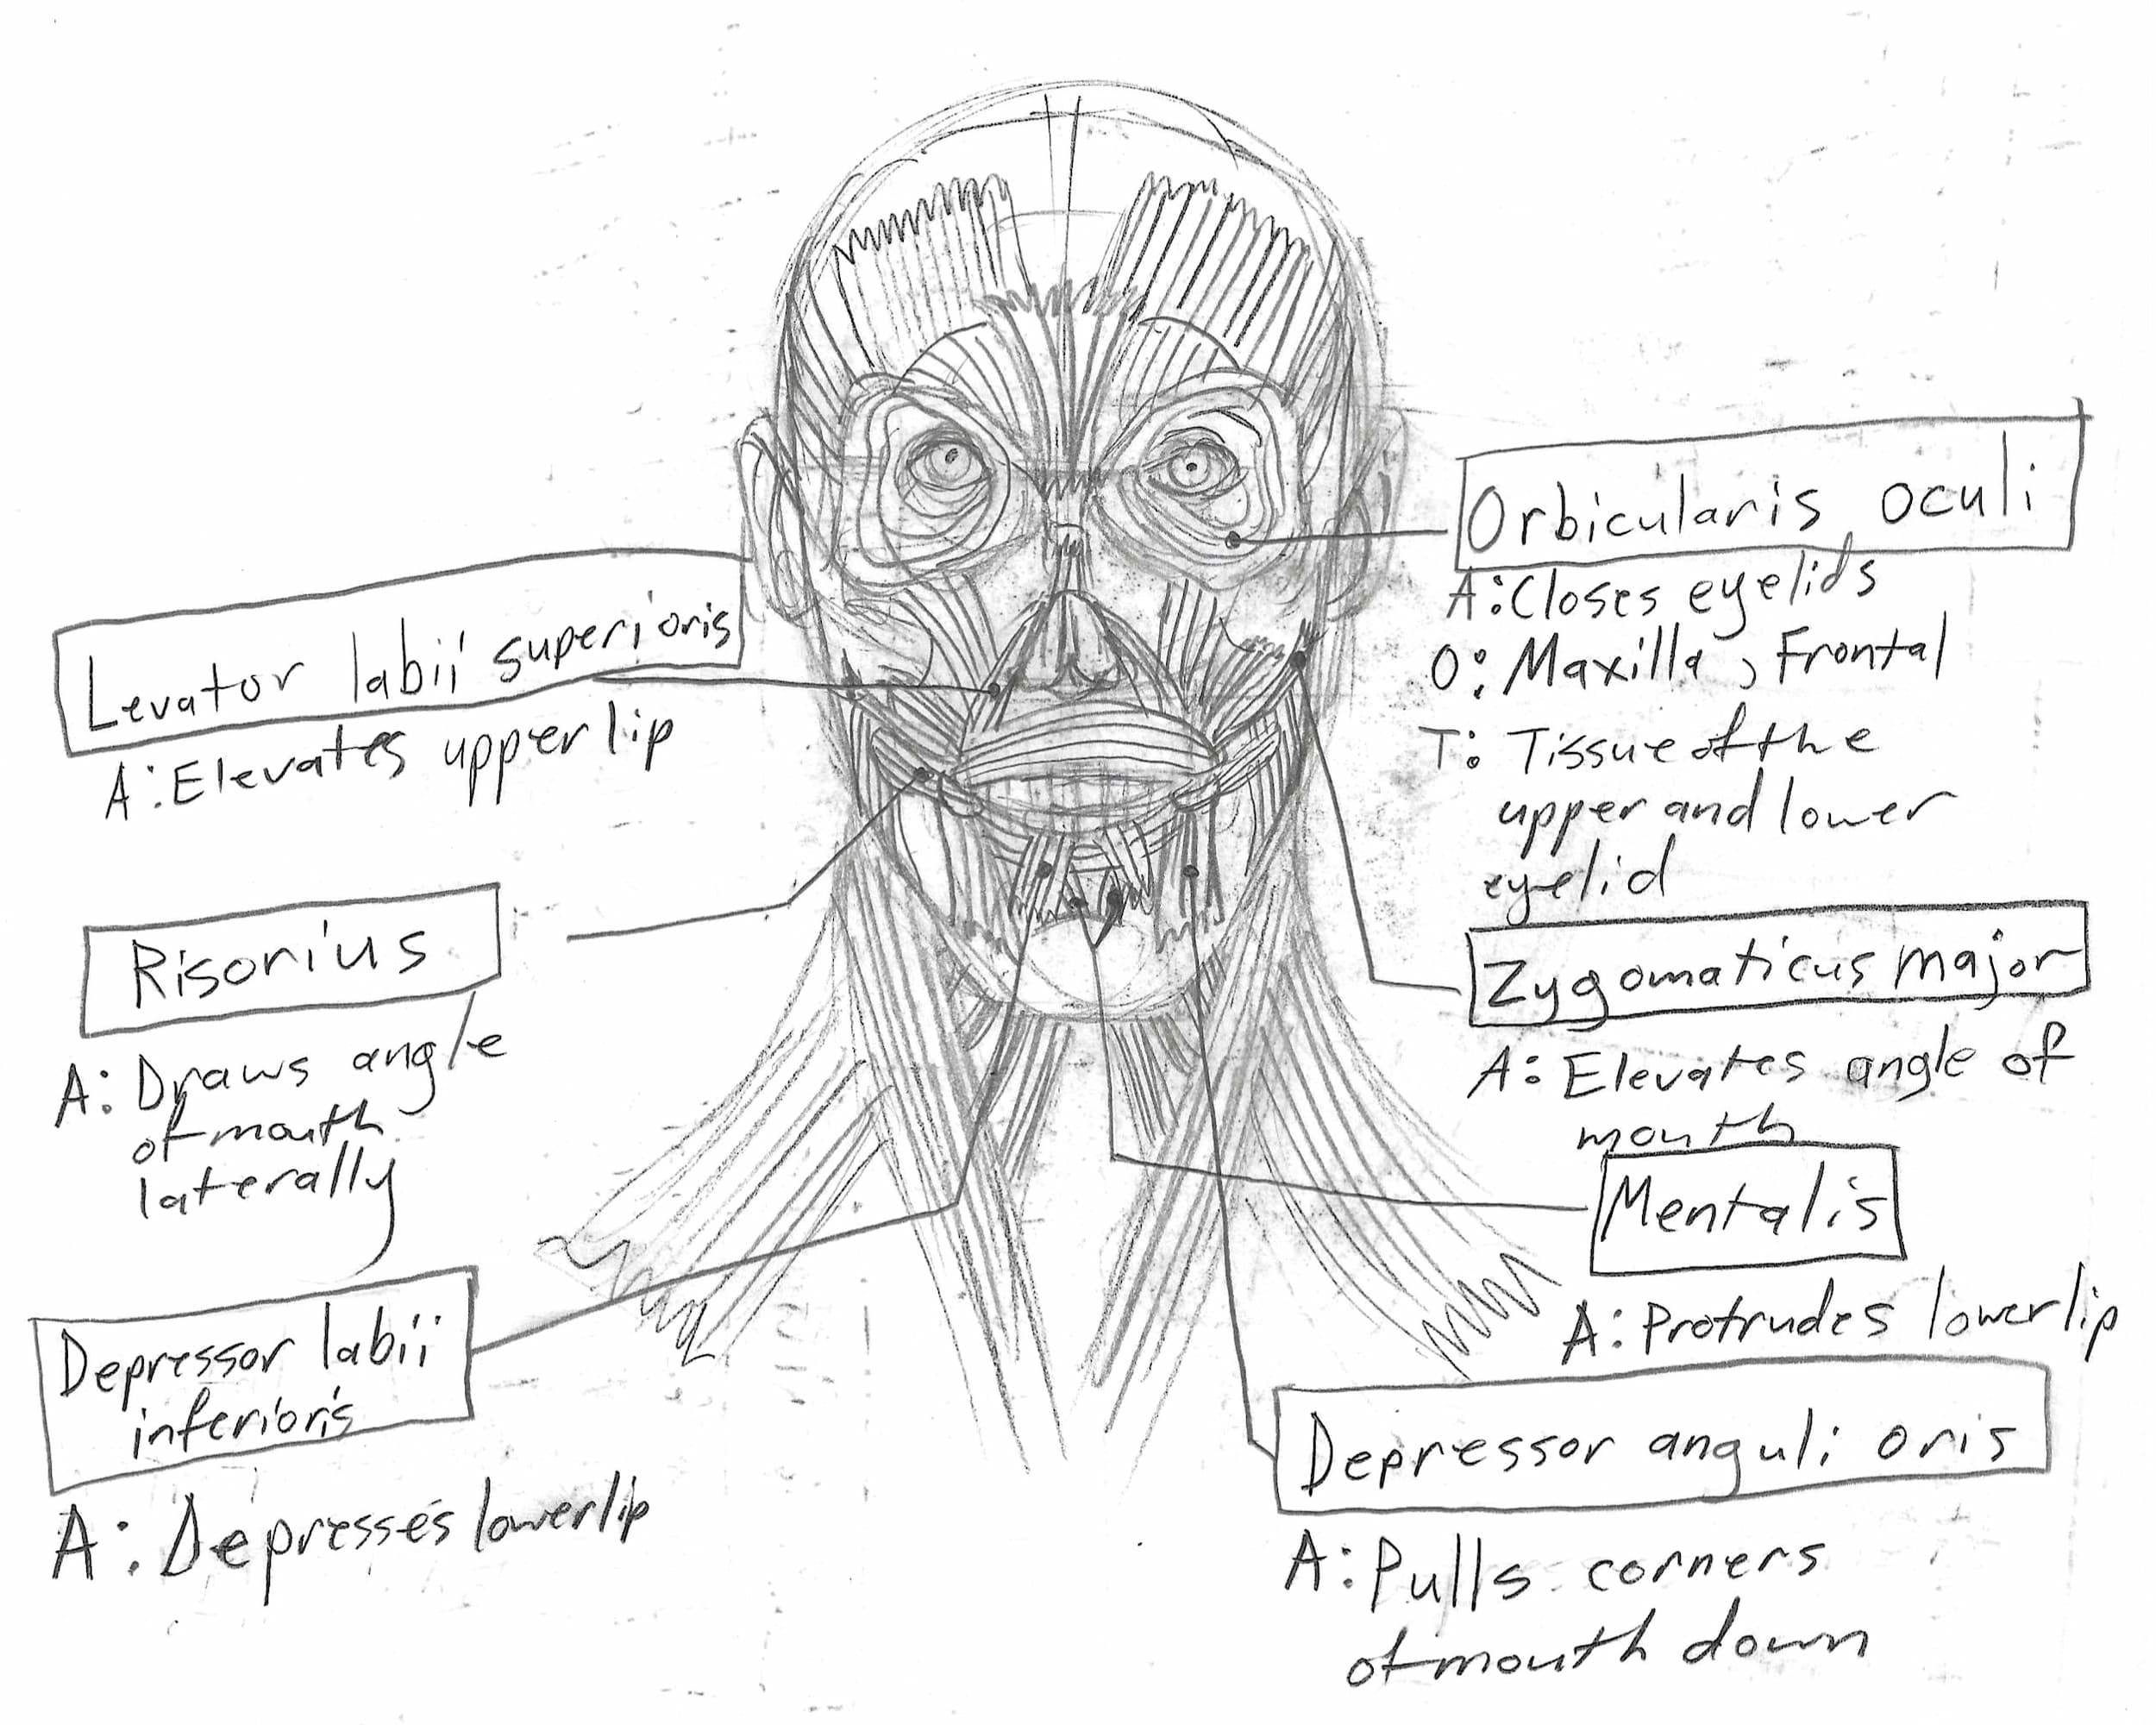 Levator labii superioris
A: Elevates upper lip
Risorius
A: Draws angle
of mouth
laterally
Depressor labii
inferioris
A: Depresses lower lip
Orbicularis oculi
A: Closes eyelids
O: Maxilla, Frontal
T: Tissue of the
upper and lower
eyelid
Zygomaticus major
A: Elevates angle of
mouth
Mentalis
A: Protrudes lower lip
Depressor anguli oris
A: Pulls corners
of mouth down